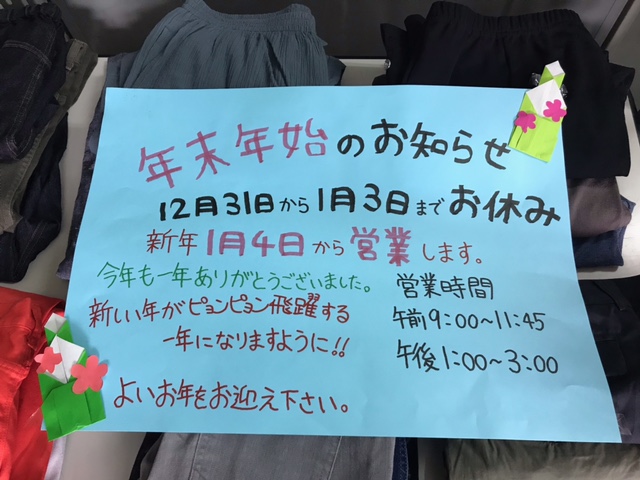 年末年始のお知らせ
12月31日から1月3日までお休み
新年1月4日から営業します。
今年も一年ありがとうございました。
新しい年がピョンピョン飛躍する
一年になりますように!!
よいお年をお迎え下さい。
営業時間
午前9:00~11:45
午後1:00~3:00